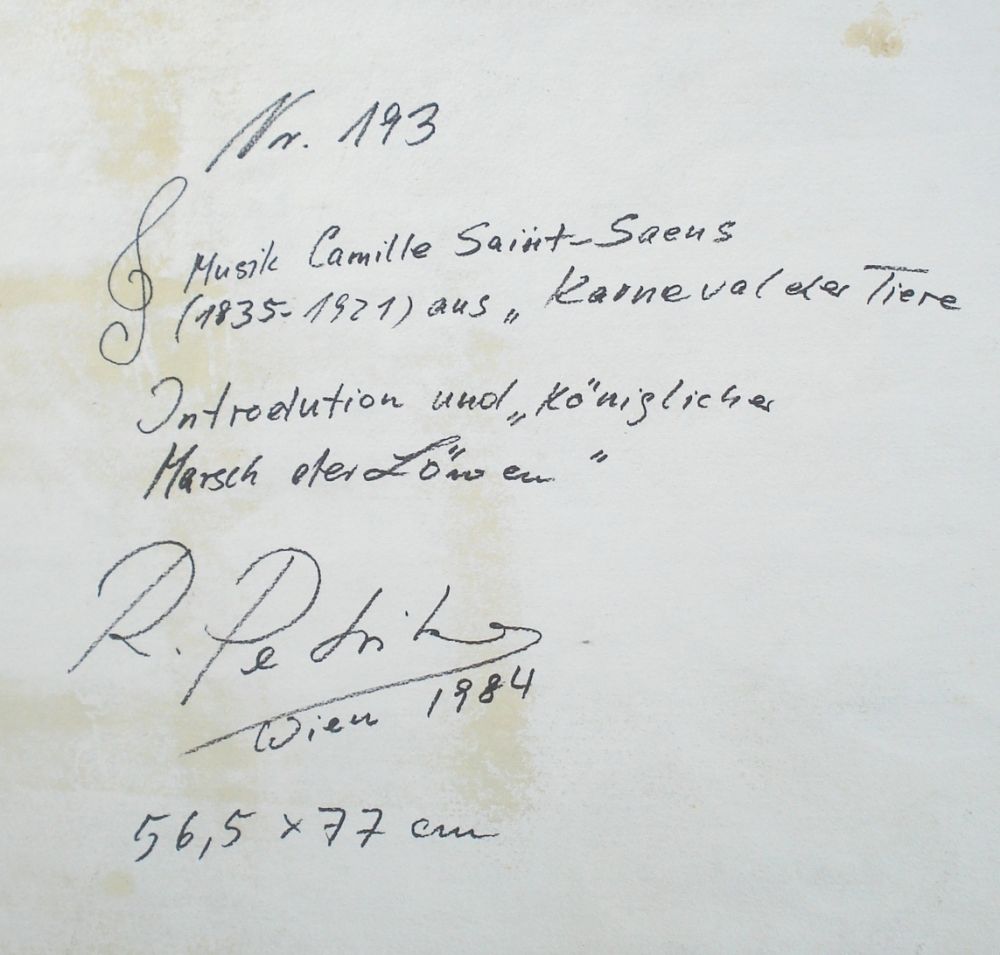 Nr. 193
Musik Camille Saint-Saens
(1835-1921) aus „Karneval der Tiere
Introdution und „Königlicher
Marsch der Löwen"
R. Petrik
Wien 1984
56,5 x 77 cm